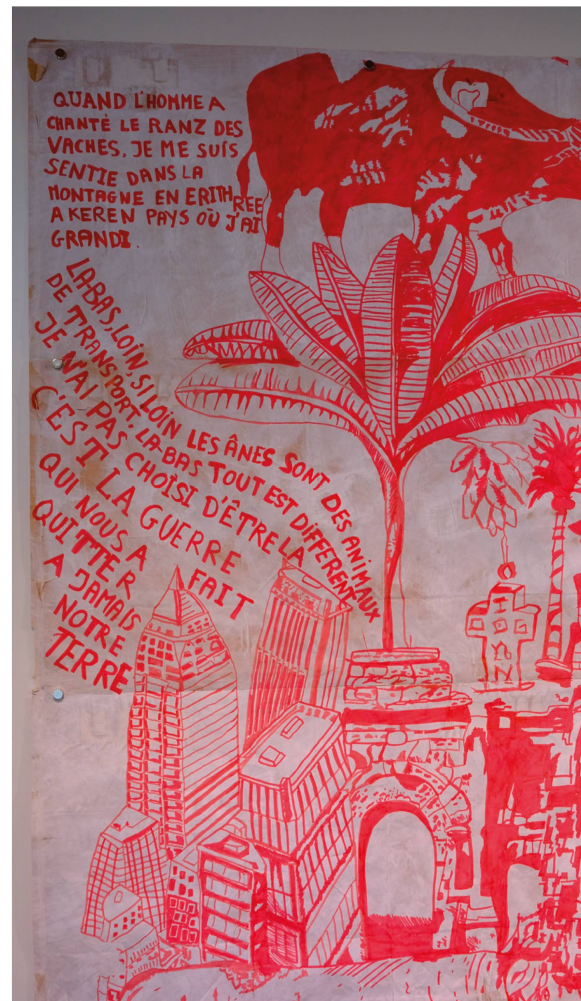 QUAND L'HOMME A
CHANTÉ LE RANZ DES
VACHES, JE ME SUIS
SENTIE DANS LA
MONTAGNE EN ERITHREE
A KEREN PAYS OÙ J'AI
GRANDI.
LA-BAS, LOIN, SI LOIN LES ÂNES SONT DES ANIMAUX
DE TRANSPORT, LA-BAS TOUT EST DIFFERENT
JE N'AI PAS CHOISI D'ÊTRE LA
C'EST LA GUERRE
QUI NOUS A FAIT
QUITTER
A JAMAIS
NOTRE
TERRE